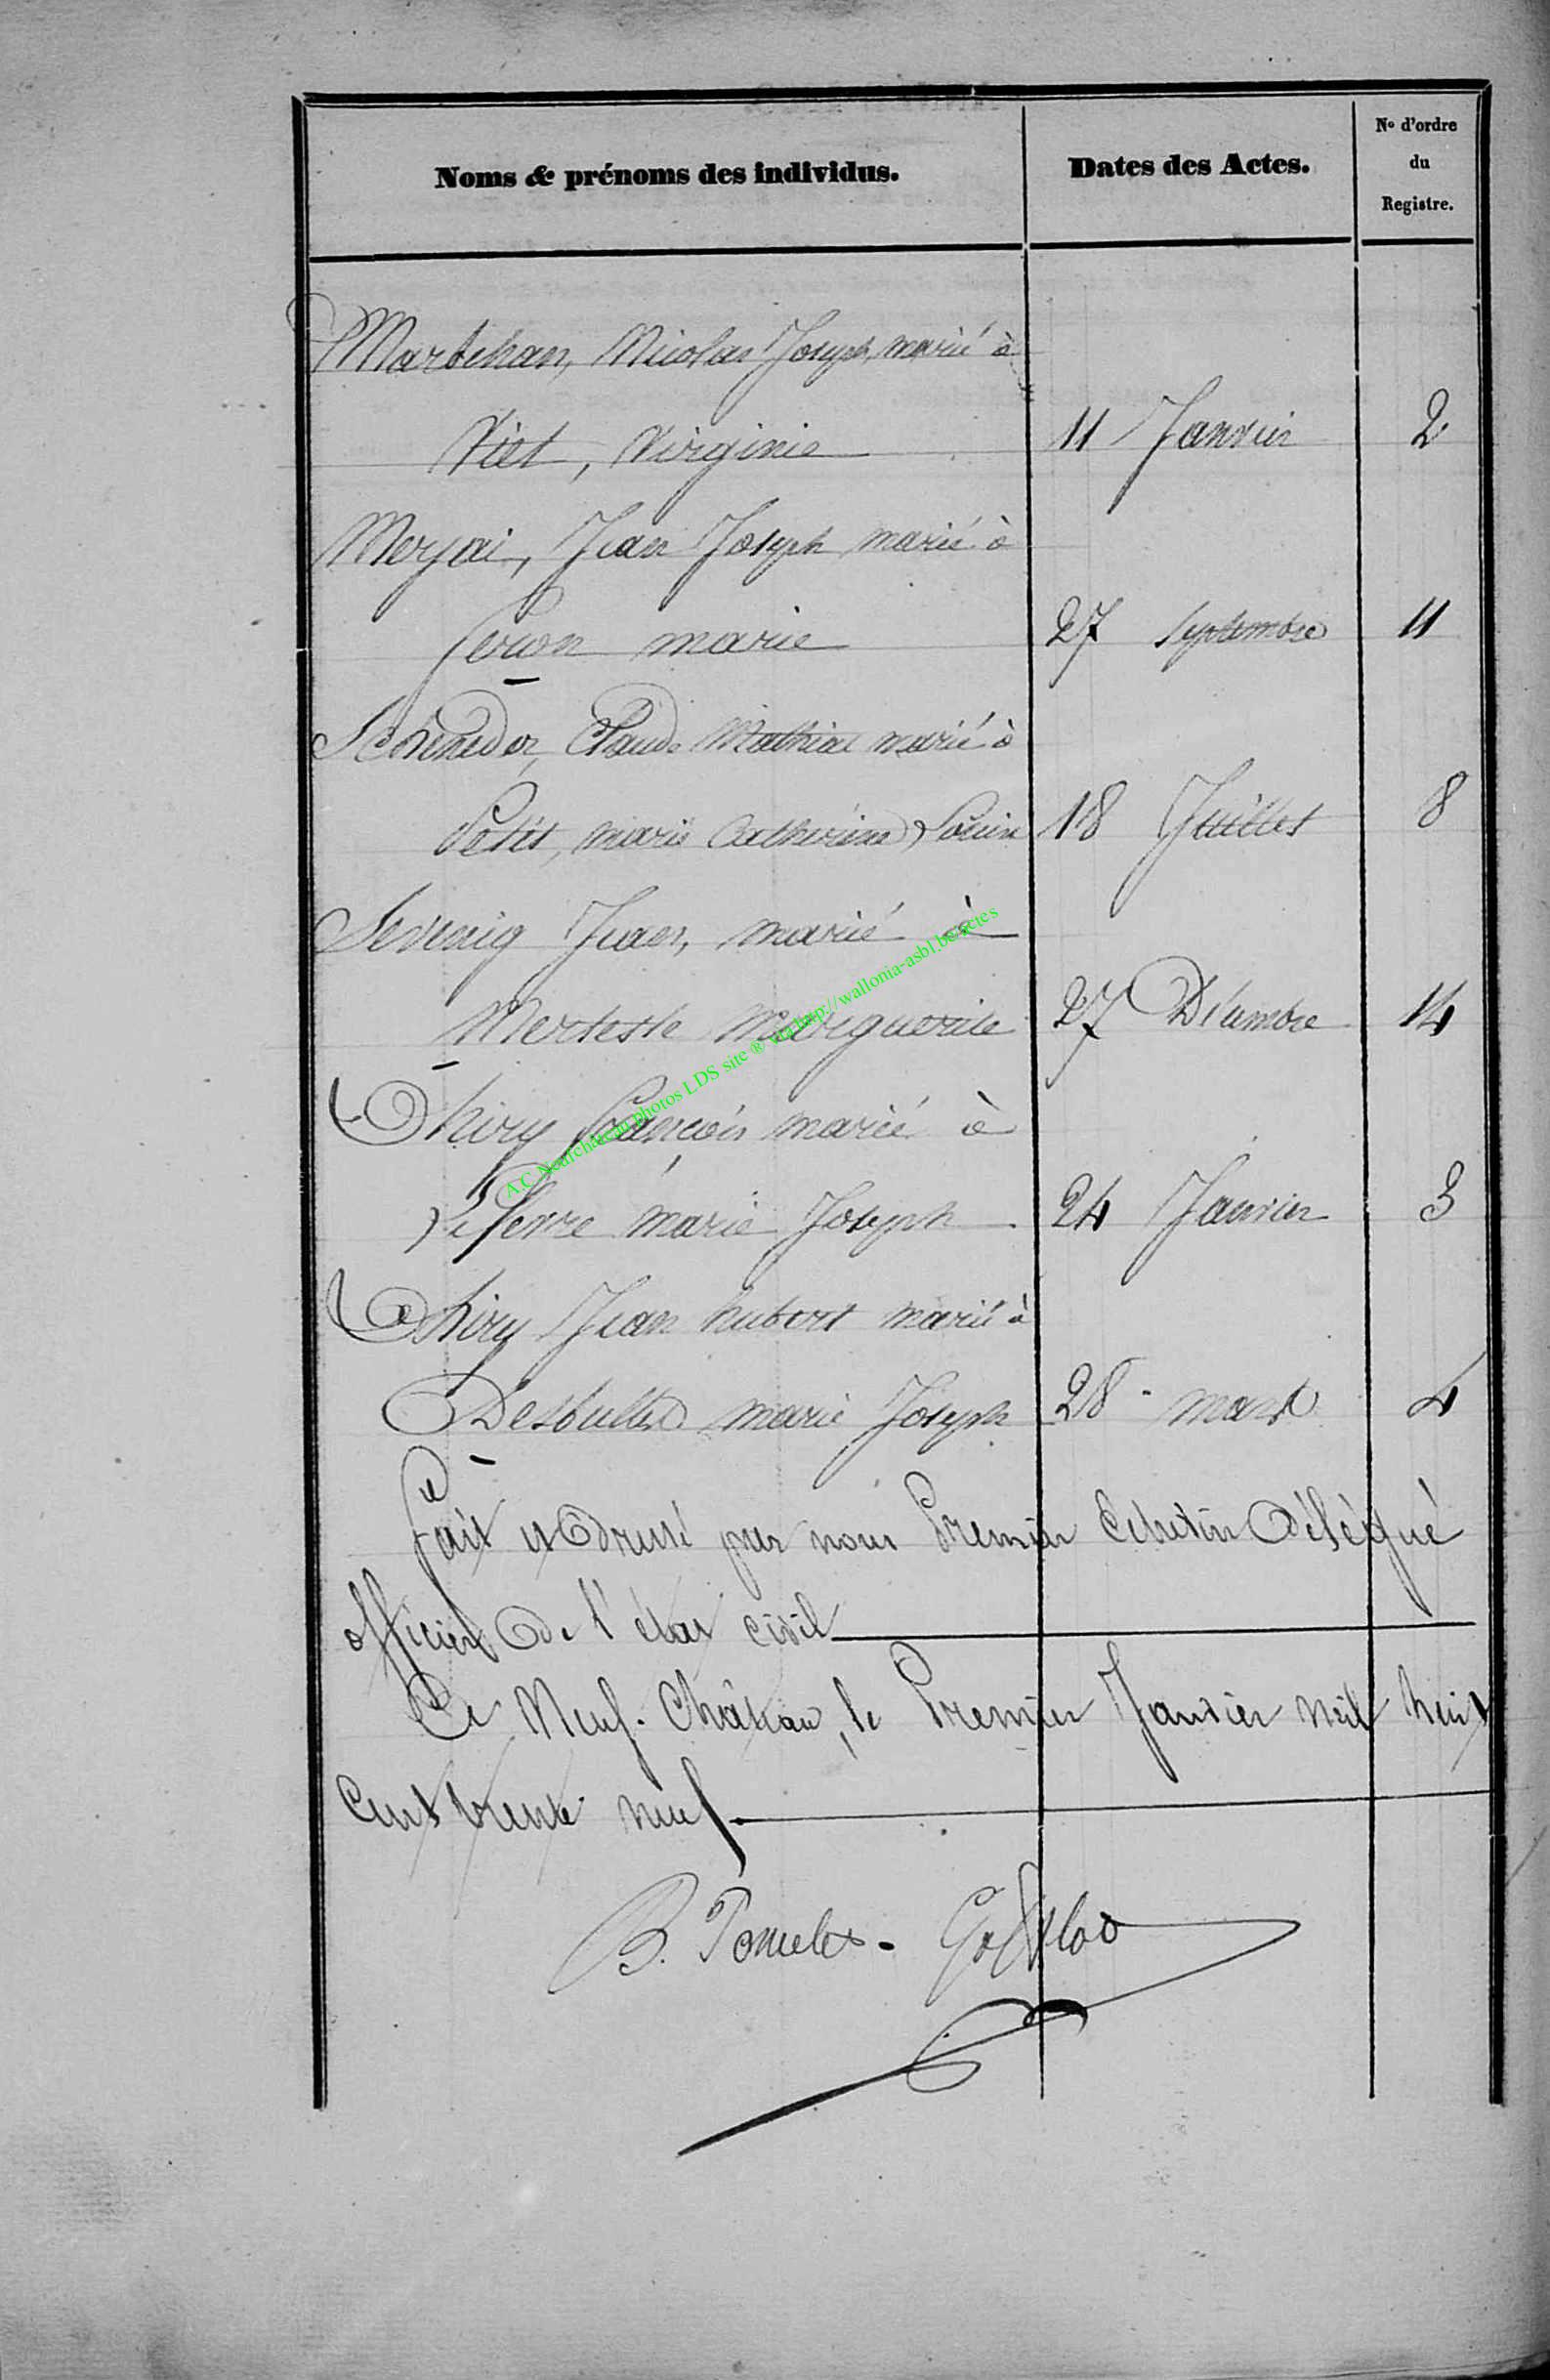 Noms & prénoms des individus.
Dates des Actes.
N° d'ordre
du
Registre.
Martchan, Nicolas Joseph, marié à
Viet, Virginie 11 Janvier 2
Merjai, Jean Joseph marié à
marie 27 Septembre 11
Claude Mathias marié à
Petit, marie Catherine 18 Juillet 8
Sevenig Jean, marié à
Marguerite 27 Décembre 14
Thiry François marié à
Lefevre marie Joseph 24 Janvier 3
Thiry Jean hubert marié à
marie Joseph 28 mars 4
Fait et Dressé par nous Premier Echevin Délégué
officier De l'état civil
Ce Neuf-Château, le Premier Janvier mil huit
Cent trente neuf
A.C Neufchâteau photos LDS site ® via http://wallonia-asbl.be/actes